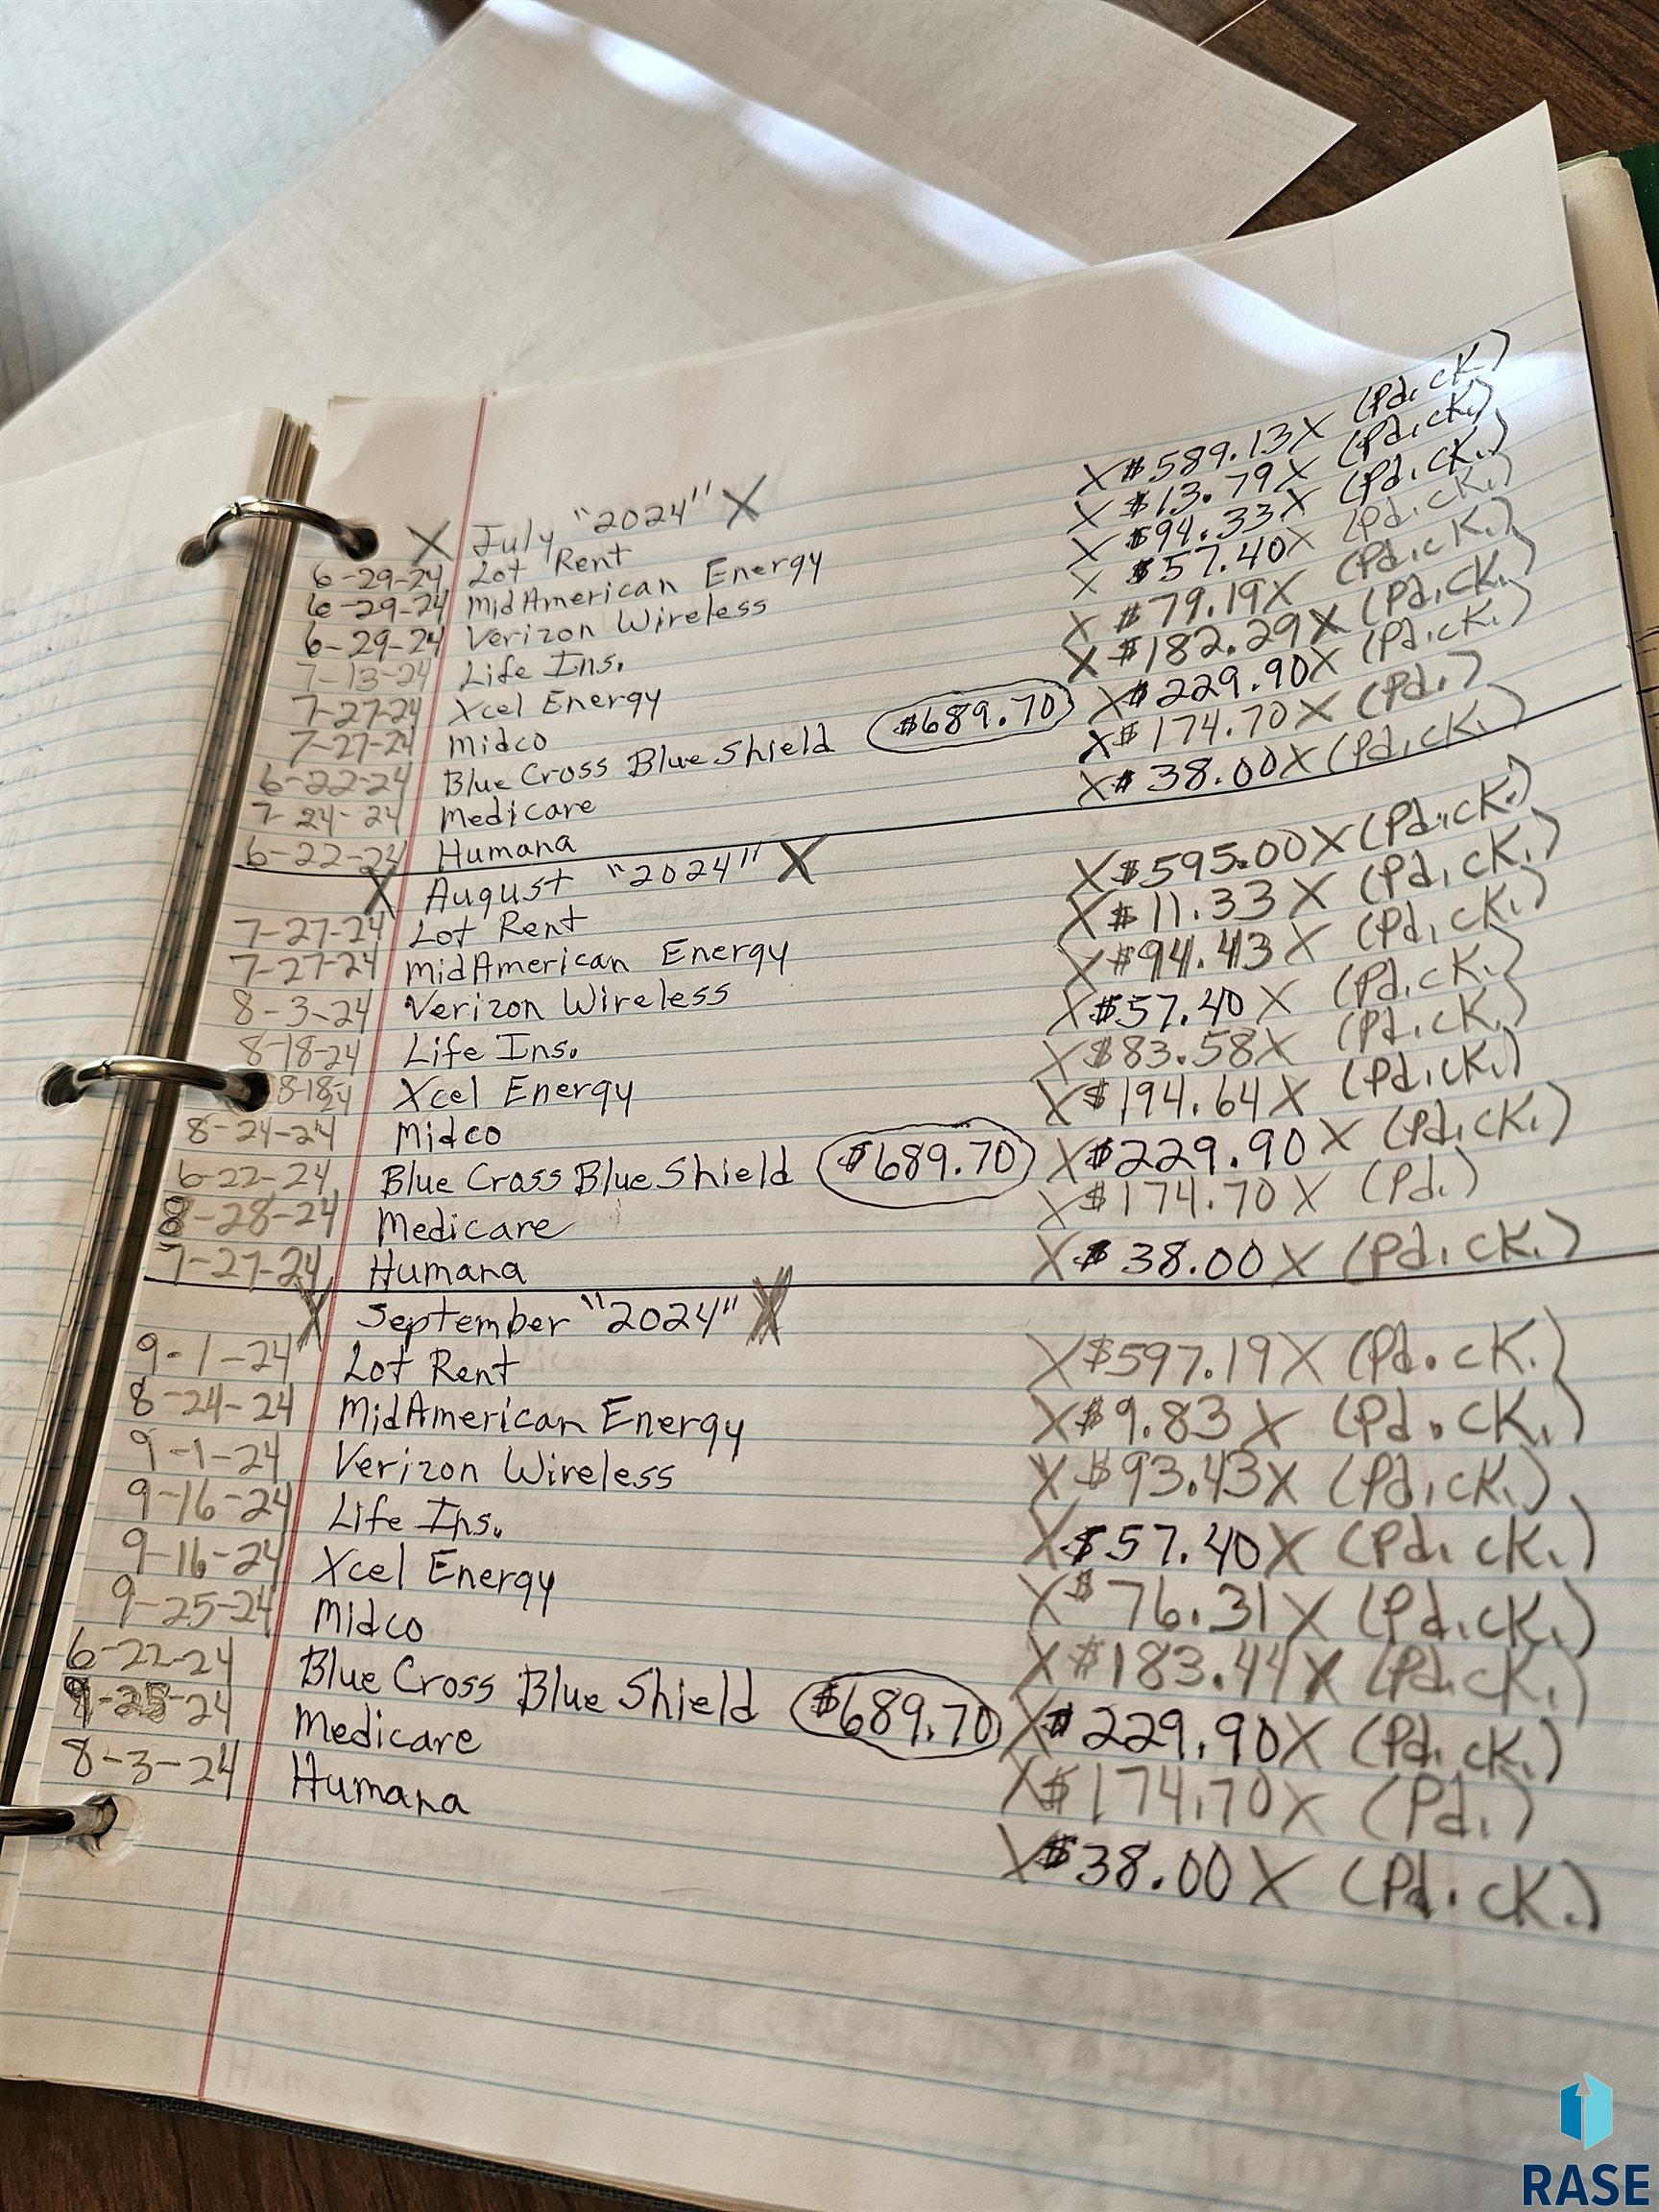 X July "2024" X
6-29-24 Lot Rent X $589.13 X (Pd. cK.)
6-29-24 MidAmerican Energy X $13.79 X (Pd. cK.)
6-29-24 Verizon Wireless X $94.33 X (Pd. cK.)
7-13-24 Life Ins. X $57.40 X (Pd. cK.)
7-27-24 Xcel Energy X $79.19 X (Pd. cK.)
7-27-24 Midco X $182.29 X (Pd. cK.)
6-22-24 Blue Cross Blue Shield $689.70 X $229.90 X (Pd. cK.)
7-24-24 Medicare X $174.70 X (Pd.)
6-22-24 Humana X $38.00 X (Pd. cK.)
X August "2024" X
7-27-24 Lot Rent X $595.00 X (Pd. cK.)
7-27-24 MidAmerican Energy X $11.33 X (Pd. cK.)
8-3-24 Verizon Wireless X $94.43 X (Pd. cK.)
8-18-24 Life Ins. X $57.40 X (Pd. cK.)
8-18-24 Xcel Energy X $83.58 X (Pd. cK.)
8-24-24 Midco X $194.64 X (Pd. cK.)
6-22-24 Blue Cross Blue Shield $689.70 X $229.90 X (Pd. cK.)
8-28-24 Medicare X $174.70 X (Pd.)
7-27-24 Humana X $38.00 X (Pd. cK.)
X September "2024" X
9-1-24 Lot Rent X $597.19 X (Pd. cK.)
8-24-24 MidAmerican Energy X $9.83 X (Pd. cK.)
9-1-24 Verizon Wireless X $93.43 X (Pd. cK.)
9-16-24 Life Ins. X $57.40 X (Pd. cK.)
9-16-24 Xcel Energy X $76.31 X (Pd. cK.)
9-25-24 Midco X $183.44 X (Pd. cK.)
6-22-24 Blue Cross Blue Shield $689.70 X $229.90 X (Pd. cK.)
9-25-24 Medicare X $174.70 X (Pd.)
8-3-24 Humana X $38.00 X (Pd. cK.)
RASE